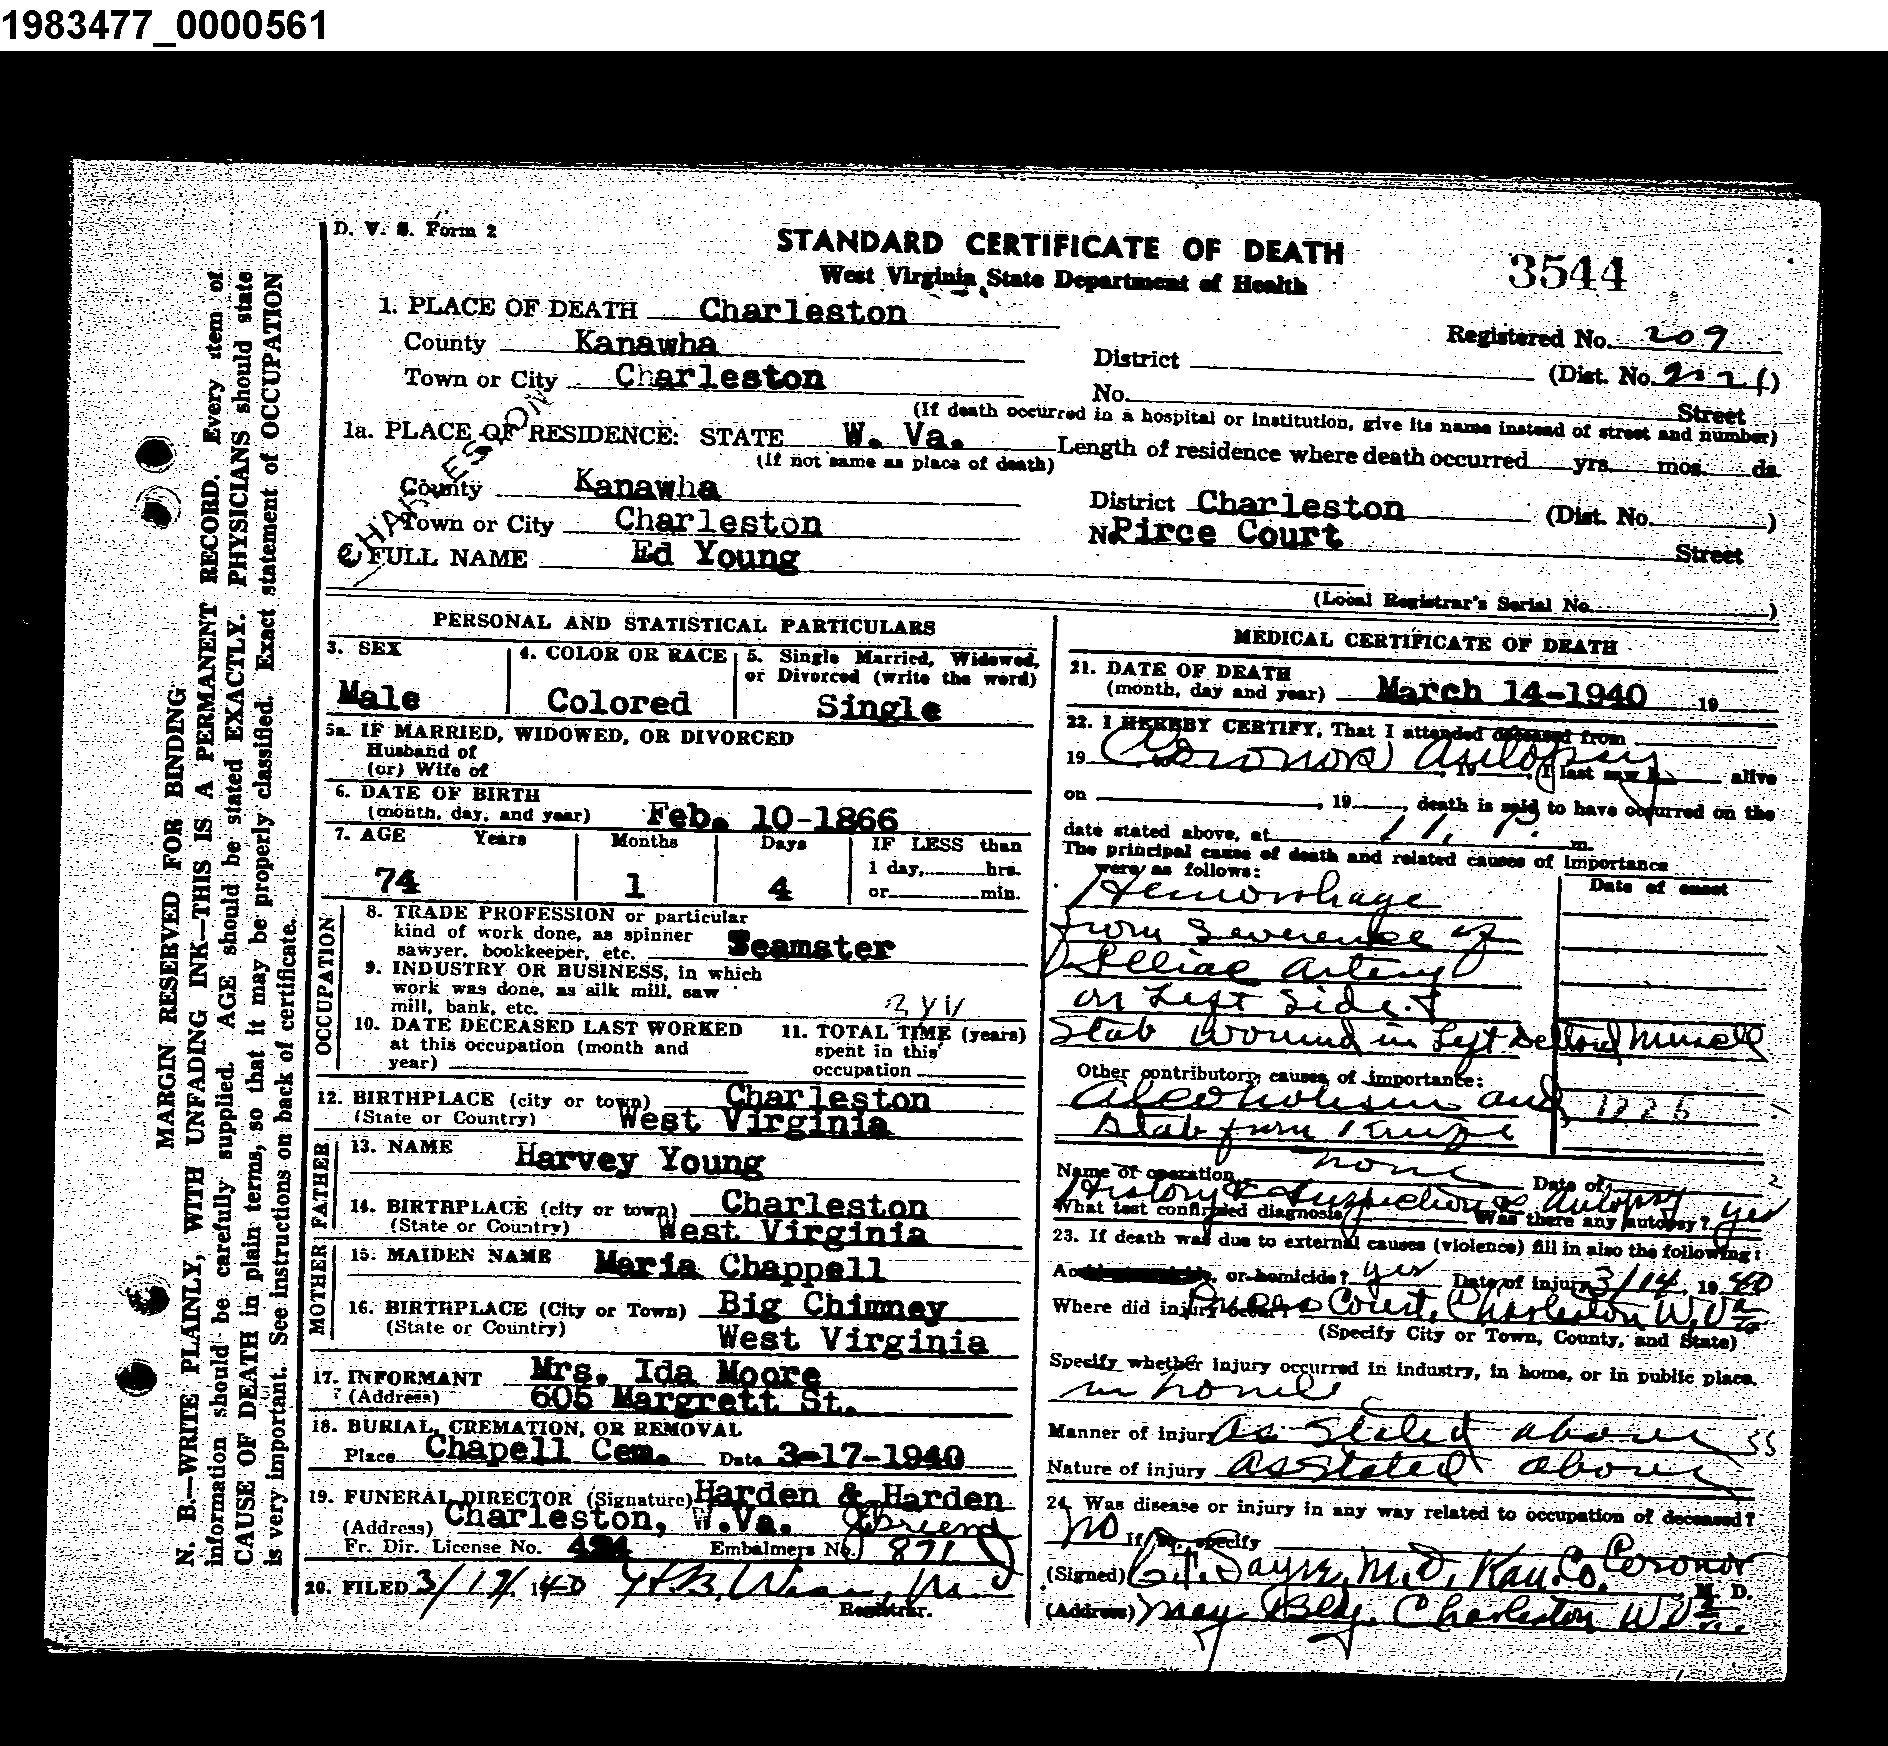 1983477_0000561
D. V. S. Form 2
STANDARD CERTIFICATE OF DEATH
West Virginia State Department of Health
3544
1. PLACE OF DEATH Charleston
Registered No. 209
County Kanawha
District (Dist. No.
Town or City Charleston
No. Street
(If death occurred in a hospital or institution, give its name instead of street and number)
CHARLESTON
1a. PLACE OF RESIDENCE: STATE W. Va.
(If not same as place of death)
Length of residence where death occurred yrs. mos. ds
County Kanawha
District Charleston (Dist. No. )
Town or City Charleston
No. Pirce Court Street
2. FULL NAME Ed Young
(Local Registrar's Serial No. )
PERSONAL AND STATISTICAL PARTICULARS
3. SEX
Male
4. COLOR OR RACE
Colored
5. Single Married, Widowed,
or Divorced (write the word)
Single
5a. IF MARRIED, WIDOWED, OR DIVORCED
Husband of
(or) Wife of
6. DATE OF BIRTH
(month, day, and year) Feb. 10-1866
7. AGE Years Months Days IF LESS than
1 day, hrs.
or min.
74 1 4
OCCUPATION
8. TRADE PROFESSION or particular
kind of work done, as spinner
sawyer, bookkeeper, etc. Teamster
9. INDUSTRY OR BUSINESS, in which
work was done, as silk mill, saw
mill, bank, etc.
10. DATE DECEASED LAST WORKED
at this occupation (month and
year)
11. TOTAL TIME (years)
spent in this
occupation
12. BIRTHPLACE (city or town) Charleston
(State or Country) West Virginia
FATHER
13. NAME Harvey Young
14. BIRTHPLACE (city or town) Charleston
(State or Country) West Virginia
MOTHER
15. MAIDEN NAME Maria Chappell
16. BIRTHPLACE (City or Town) Big Chimney
(State or Country) West Virginia
17. INFORMANT Mrs. Ida Moore
(Address) 605 Margrett St.
18. BURIAL, CREMATION, OR REMOVAL
Place Chapell Cem. Date 3-17-1940
19. FUNERAL DIRECTOR (Signature) Harden & Harden
(Address) Charleston, W.Va.
Fr. Dir. License No. Embalmers No. 871
20. FILED 3/17/1940
Registrar.
MEDICAL CERTIFICATE OF DEATH
21. DATE OF DEATH
(month, day and year) March 14-1940 19
22. I HEREBY CERTIFY, That I attended deceased from
19 Coronors Autopsy 19 I last saw h alive
on , 19 , death is said to have occurred on the
date stated above, at 11 P. m.
The principal cause of death and related causes of importance
were as follows:
Date of onset
Hemorrhage
from Severence of
Illiac Artery
on Left Side &
Stab Wound in Left Deltoid Muscle
Other contributory causes of importance:
Alcoholism and
Stab from Knife
Name of operation none Date of
History & Inspection & Autopsy
What test confirmed diagnosis? Was there any autopsy? yes
23. If death was due to external causes (violence) fill in also the following:
or homicide? yes Date of injury 3/14, 1940
Where did injury occur? Court, Charleston W.Va
(Specify City or Town, County, and State)
Specify whether injury occurred in industry, in home, or in public place.
in home
Manner of injury As Stated above
55
Nature of injury As Stated above
24. Was disease or injury in any way related to occupation of deceased?
No If so, specify
(Signed) Sayre, M.D. Kan. Co. Coronor M. D.
(Address) May Bldg. Charleston W.Va.
MARGIN RESERVED FOR BINDING
N. B.—WRITE PLAINLY, WITH UNFADING INK—THIS IS A PERMANENT RECORD. Every item of
information should be carefully supplied. AGE should be stated EXACTLY. PHYSICIANS should state
CAUSE OF DEATH in plain terms, so that it may be properly classified. Exact statement of OCCUPATION
is very important. See instructions on back of certificate.